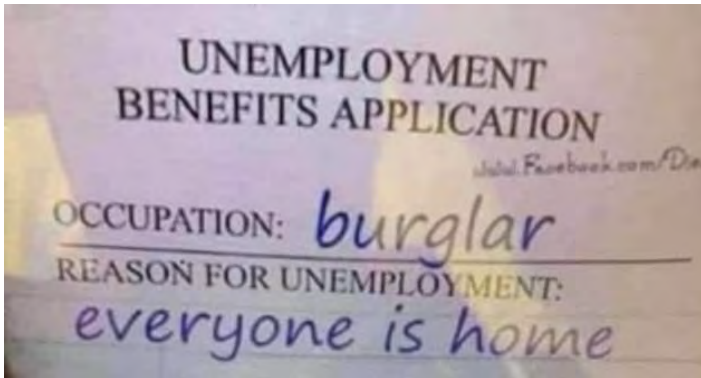 UNEMPLOYMENT
BENEFITS APPLICATION
www.Facebook.com/Die
OCCUPATION: burglar
REASON FOR UNEMPLOYMENT:
everyone is home